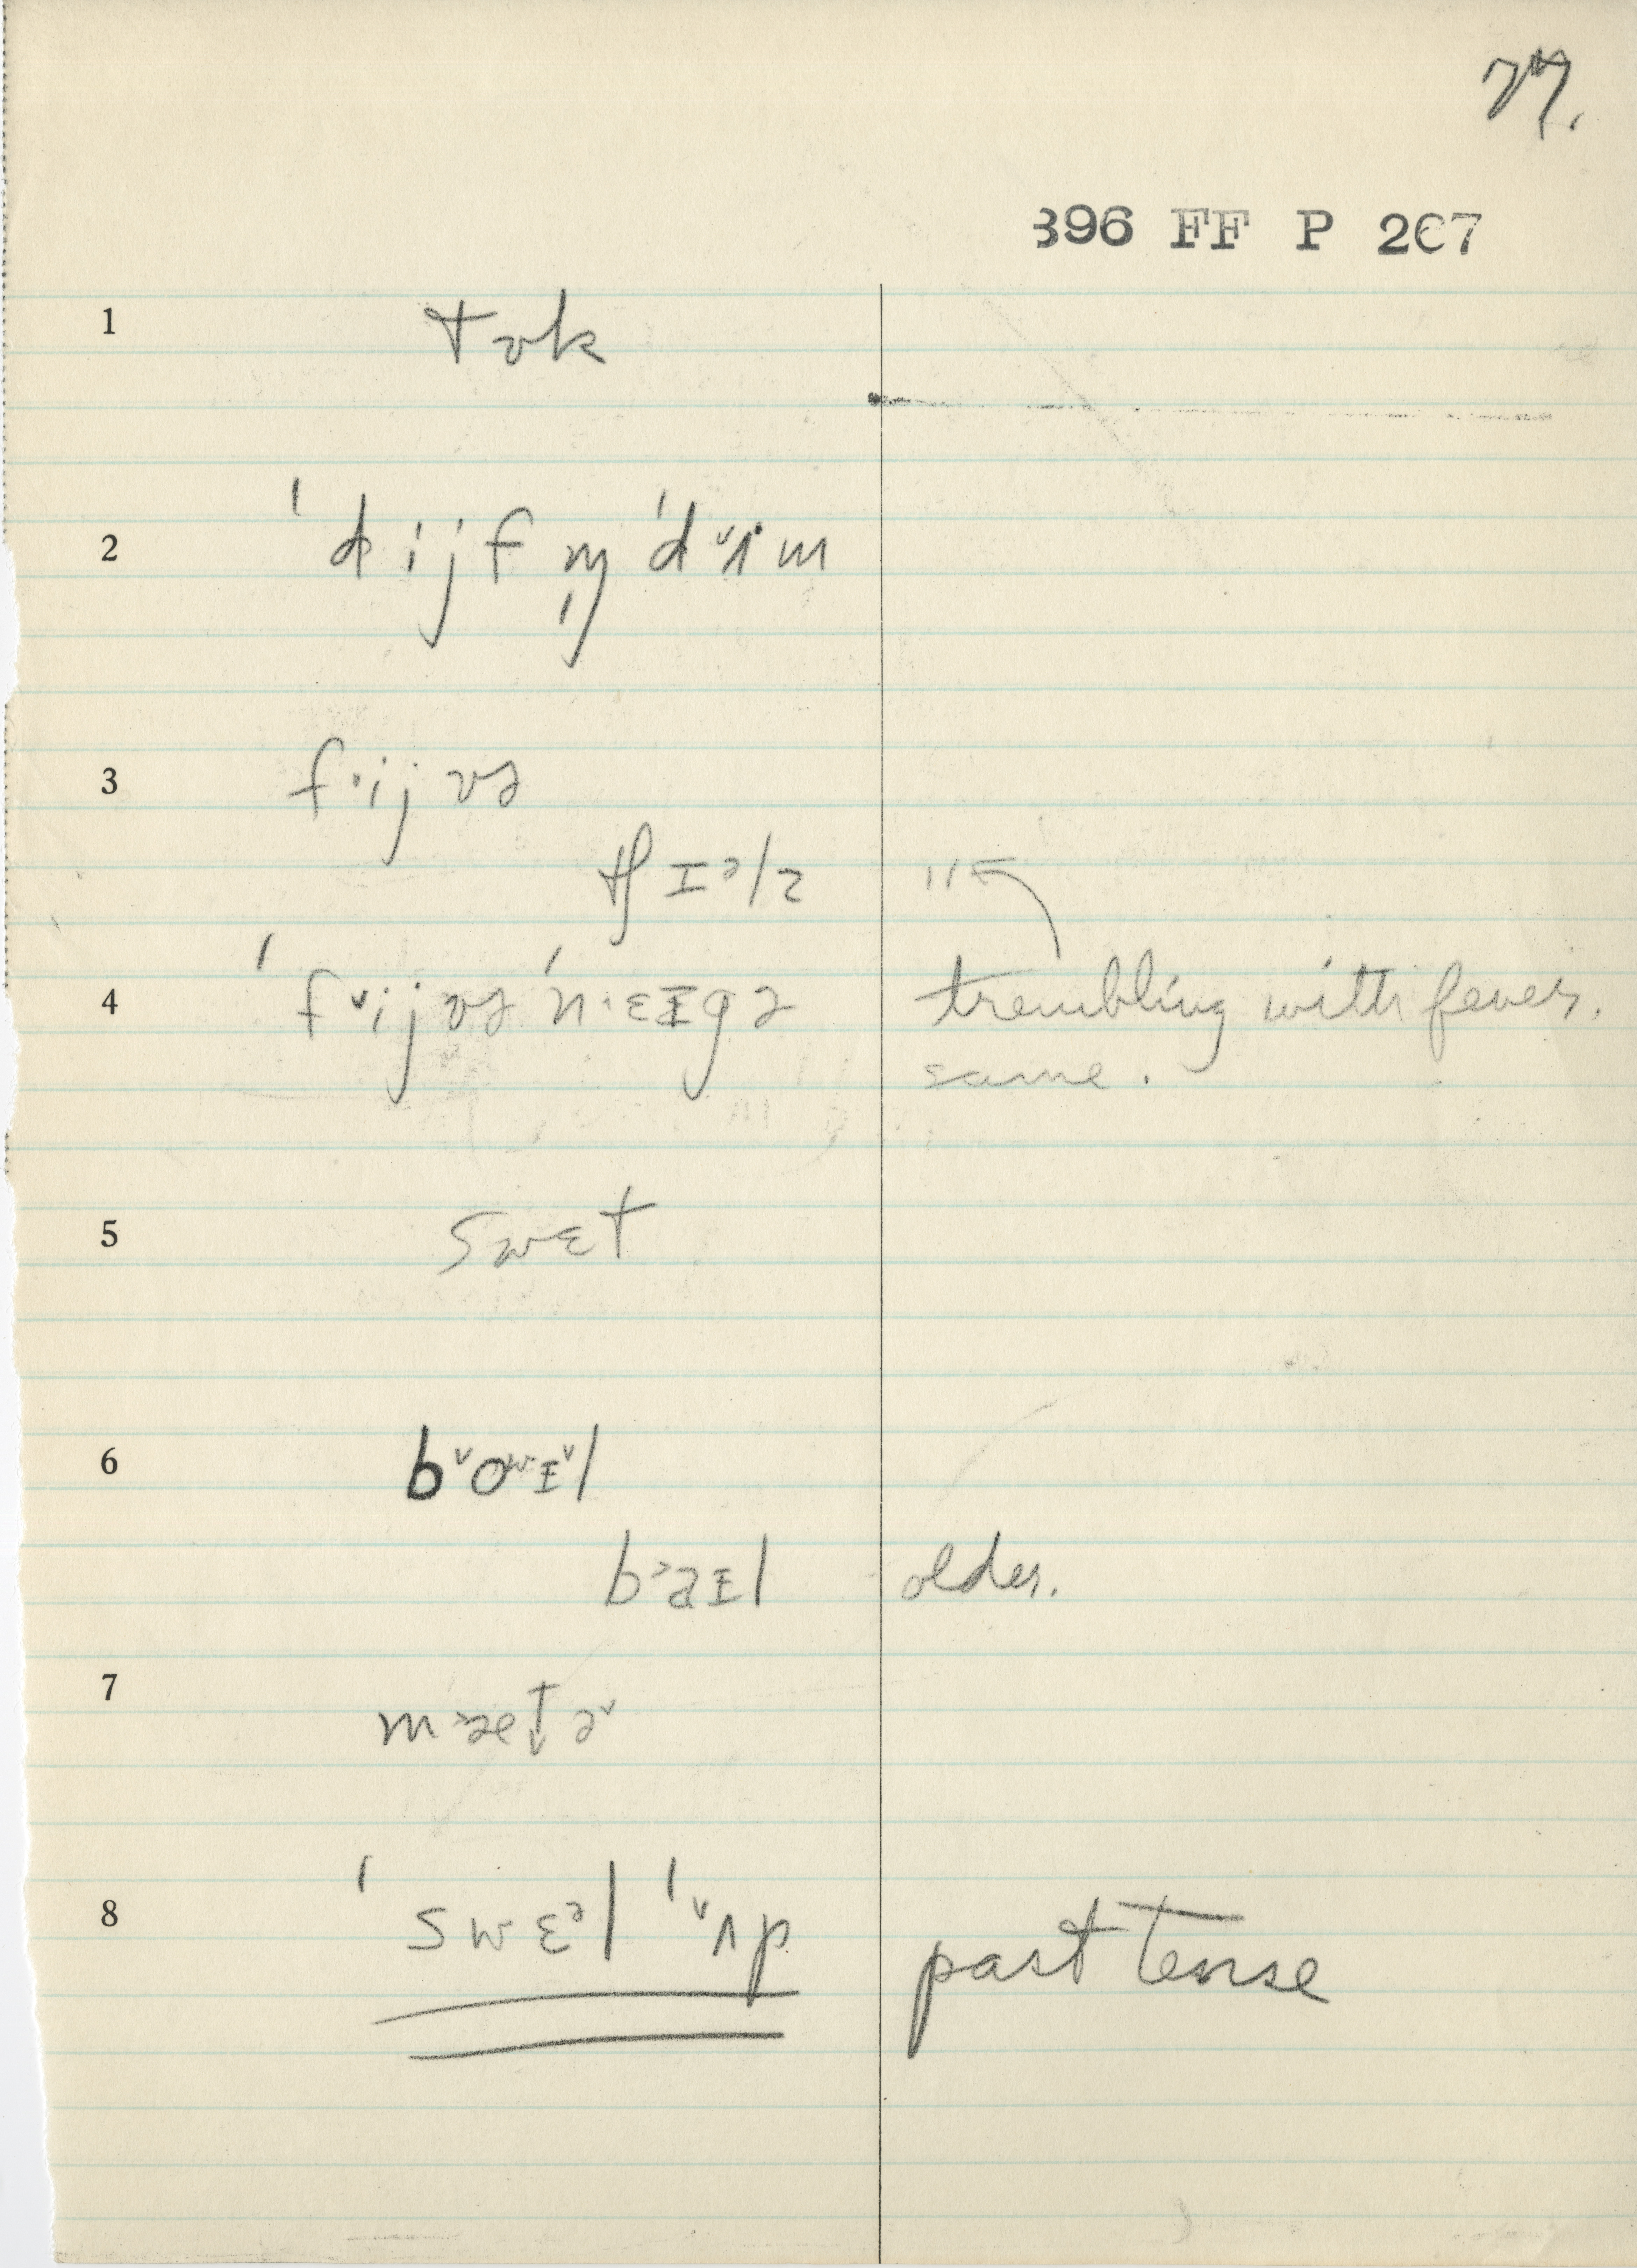 77.
396 FF P 207
1 tɒk
2 ˈd̥ijf m̩ ˈd˅ʌ·m
3 f·ijvə
tʃɪᵊlz "
4 ˈf˅ijvə ˈn·ɛɪgə trembling with fever.
same.
5 swɛt
6 b˅oʷɪ˅l
b˃aɪl older.
7 m˃æt̬ə˅
8 ˈswɛᵊl ˈ˅ʌp past tense